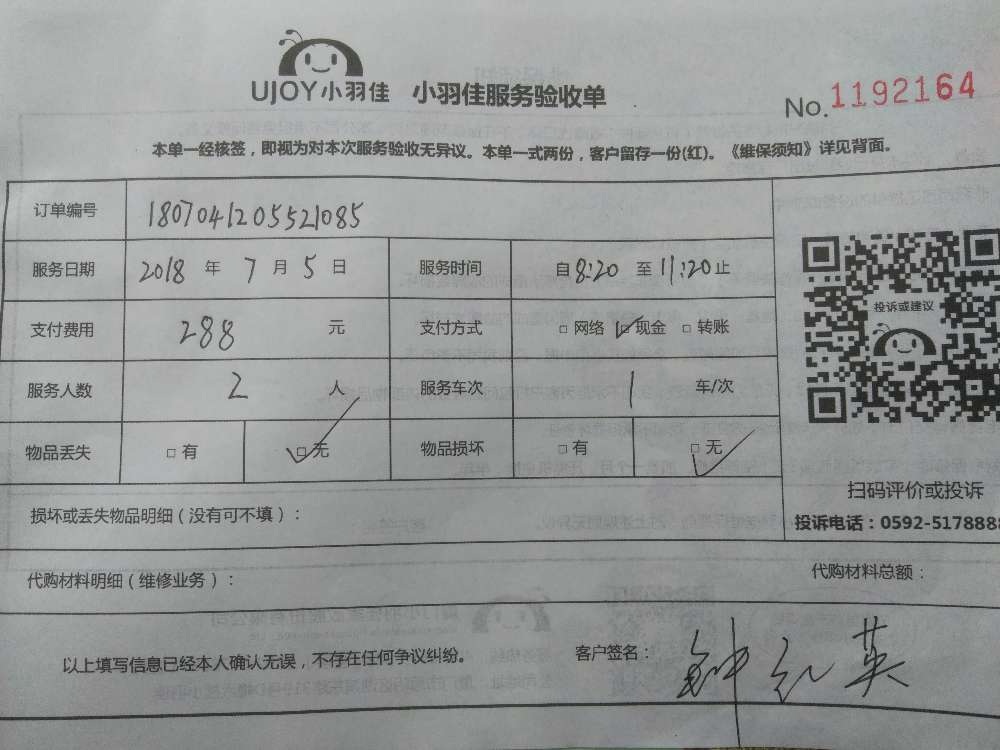 UJOY小羽佳 小羽佳服务验收单
No.1192164
本单一经核签，即视为对本次服务验收无异议。本单一式两份，客户留存一份(红)。《维保须知》详见背面。
订单编号 1807041205521085
服务日期 2018 年 7 月 5 日 服务时间 自8:20 至11:20止
支付费用 288 元 支付方式 □网络 ☑现金 □转账
服务人数 2 人 服务车次 1 车/次
物品丢失 □有 ☑无 物品损坏 □有 ☑无
投诉或建议
扫码评价或投诉
投诉电话：0592-5178888
损坏或丢失物品明细（没有可不填）：
代购材料明细（维修业务）： 代购材料总额：
以上填写信息已经本人确认无误，不存在任何争议纠纷。 客户签名：钟红英